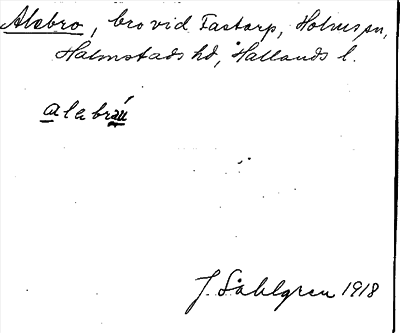 Alebro, bro vid Fastarp, Holms sn,
Halmstads hd, Hallands l.
alebráu
J. Sahlgren 1918